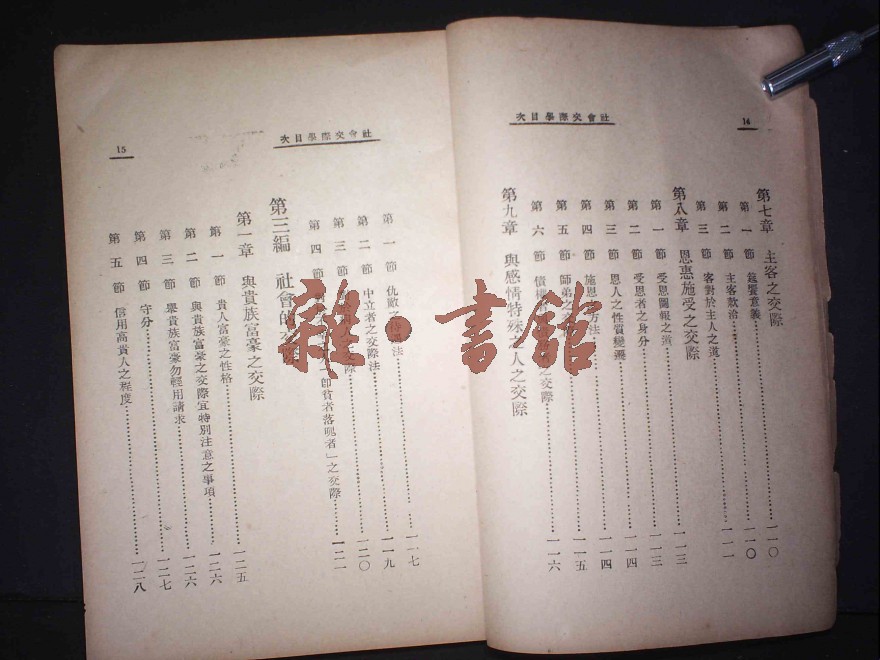 社會交際學目次
14
第七章 主客之交際 一一〇
第一節 筵饗意義 一一〇
第二節 主客款洽 一一一
第三節 客對於主人之道 一一二
第八章 恩惠施受之交際 一一三
第一節 受恩圖報之道 一一三
第二節 受恩者之身分 一一四
第三節 恩人之性質變遷 一一四
第四節 施恩之方法 一一五
第五節 師弟之交 一一五
第六節 債權 之交際 一一六
第九章 與感情特殊之人之交際
社會交際學目次
15
第一節 仇敵之待遇法 一一七
第二節 中立者之交際法 一一九
第三節 之交際 一二〇
第四節 即貧者落魄者」之交際 一二一
第三編 社會的交際
第一章 與貴族富豪之交際 一二五
第一節 貴人富豪之性格 一二六
第二節 與貴族富豪之交際宜特別注意之事項 一二六
第三節 與貴族富豪勿輕用請求 一二七
第四節 守分 一二八
第五節 信用高貴人之程度
雜·書館